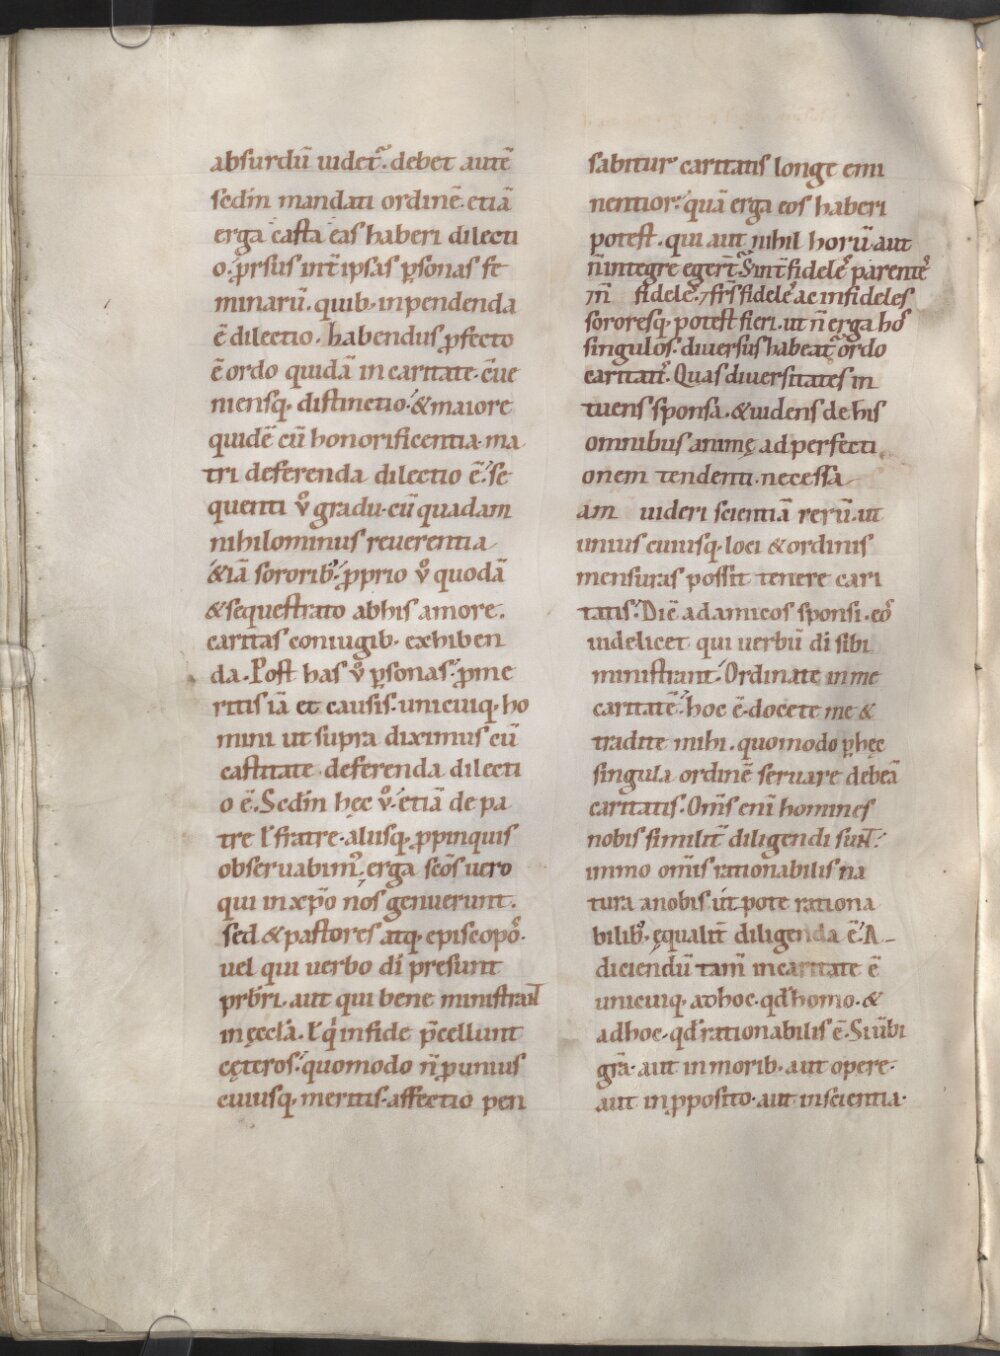 absurdū uidet᷑. debet autē
sedm̄ mandati ordinē. etiā
erga casta eas haberi dilecti
o. p̄rsus int̄ ipsas ꝑsonas fe
minarū. quib; inpendenda
ē dilectio. habendus ꝓfecto
ē ordo quidā in caritate. cūe
niensq; distinctio. & maiore
quidē cū honorificentia. ma
tri deferenda dilectio ē. se
quenti uͦ gradu. cū quadam
nihilominus reuerentia
&iā sororib;. ꝓprio uͦ quodā
& sequestrato ab his amore.
caritas coniugib; exhiben
da. Post has uͦ ꝑsonas. ꝓ me
ritis iā et causis. unicuiq; ho
mini ut supra diximus cū
castitate deferenda dilecti
o ē. Sedm̄ hęc uͦ. etiā de pa
tre ł fratre. aliisq; ꝓpinquis
obseruabim᷒. erga sc̄os uero
qui in xp̄o nos genuerunt.
sed & pastores atq; episcopo᷒.
uel qui uerbo dī presunt
prb̄ri. aut qui bene ministraɴt
in ęccła. ł qͥ in fide p̄cellunt
cęteros. quomodo n̄ ꝓ unius
cuiusq; meritis. affectio pen
sabitur caritatis longe emi
nentior. quā erga eos haberi
potest. qui aut nihil horū aut
n̄ integre eger̄t. Sint̄ fidele᷒ parente᷒
⁊ n̄ fidele᷒. ⁊ fr̄s fidele᷒ ac infideles
sororesq; potest fieri. ut n̄ erga ho᷒
singulos. diuersus habeat᷑ ordo
caritati᷒. Quas diuersitates in
tuens sponsa. & uidens de his
omnibus animę ad perfecti
onem tendenti. necessa
am uideri scientiā rerū. ut
unius cuiusq; loci & ordinis
mensuras possit tenere cari
tatis. Dic̄ ad amicos sponsi. eo᷒
uidelicet qui uerbū dī sibi
ministrant. Ordinate in me
caritatē. hoc ē. docete me &
tradite mihi. quomodo ꝑ hęc
singula ordinē seruare debeā
caritatis. Om̄s enī homines
nobis similit̄ diligendi suɴt.
immo om̄is rationabilis na
tura a nobis ut pote rationa
bilib;. ęqualit̄ diligenda ē. A
diciendū tam̄ in caritate ē
unicuiq; ad hoc. qd̄ homo. &
ad hoc. qd̄ rationabilis ē. Si ū bi
gr̄a. aut in morib; aut opere.
aut in ꝓposito. aut in scientia.